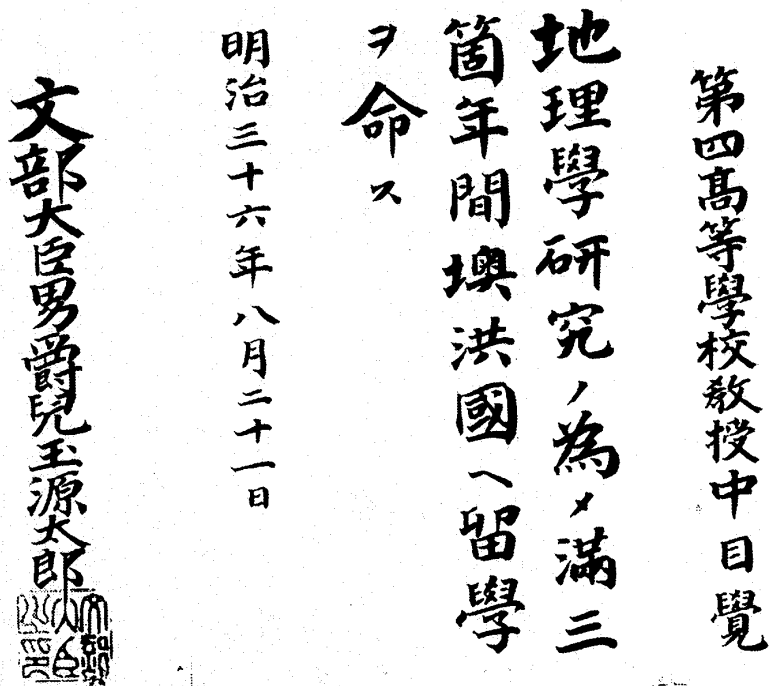 第四高等學校教授中目覺
地理學研究ノ為メ滿三
箇年間墺洪國ヘ留學
ヲ命ス
明治三十六年八月二十一日
文部大臣男爵兒玉源太郎